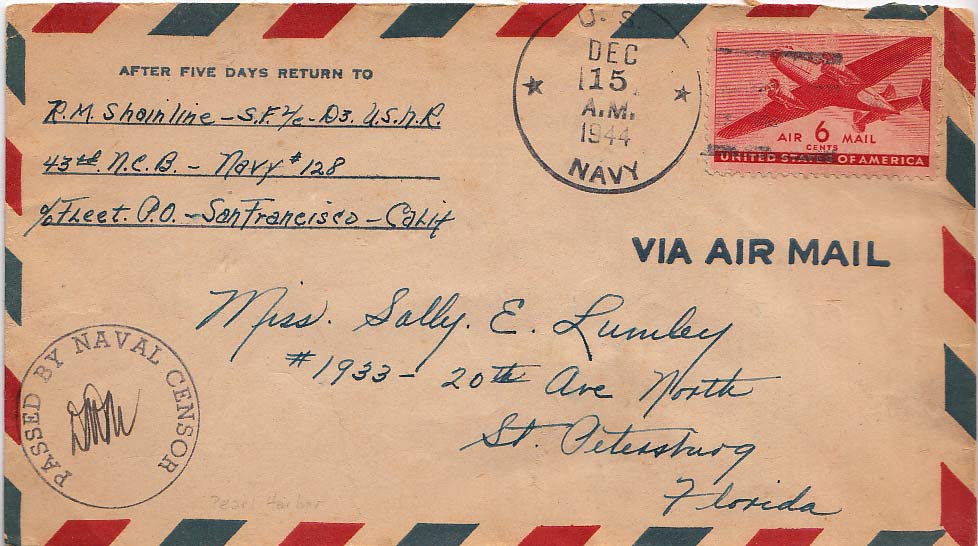 AFTER FIVE DAYS RETURN TO
R.M. Shainline - S.F. 1/c - D3. U.S.N.R.
43rd N.C.B. - Navy #128
c/o Fleet. P.O. - San Francisco - Calif
U. S.
DEC
15
A.M.
1944
NAVY
AIR 6 MAIL
CENTS
UNITED STATES OF AMERICA
VIA AIR MAIL
Miss. Sally. E. Lumley
#1933 - 20th Ave North
St. Petersburg
Florida
PASSED BY NAVAL CENSOR
Pearl Harbor